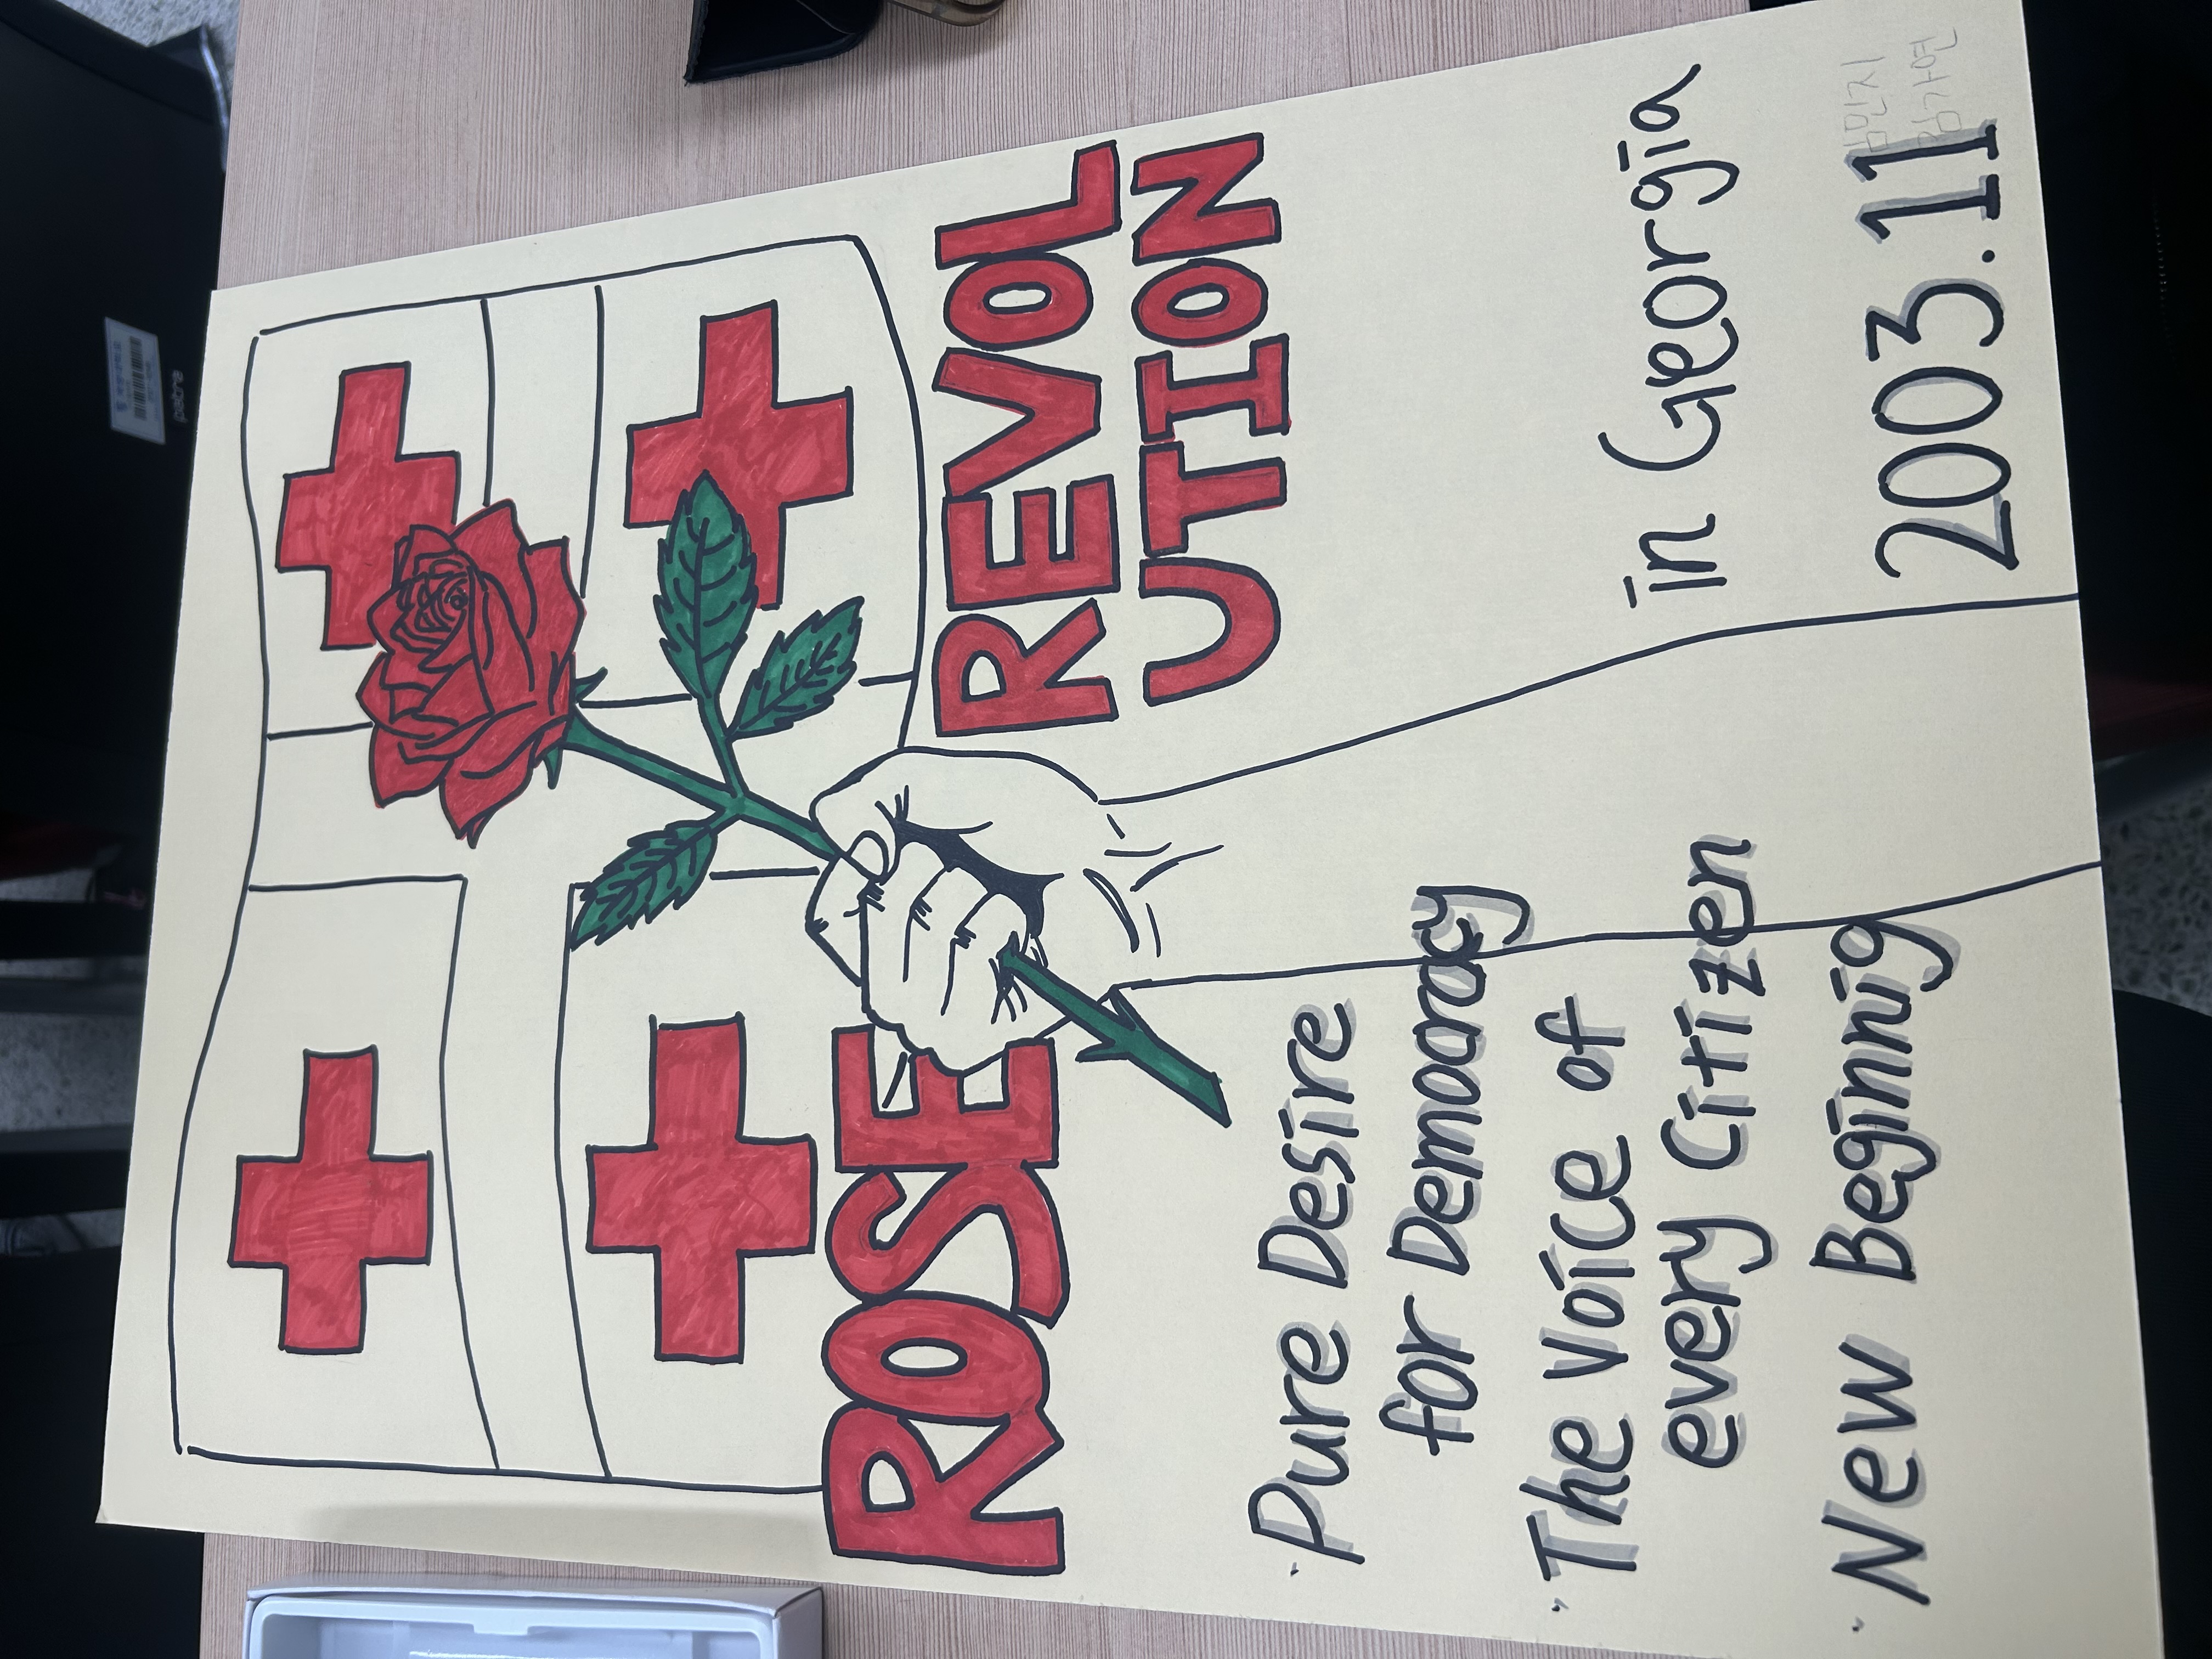 ROSE
REVOL
UTION
· Pure Desire
for Democracy
· The Voice of
every Citizen
· New Beginnig
in Georgia
2003.11
petra